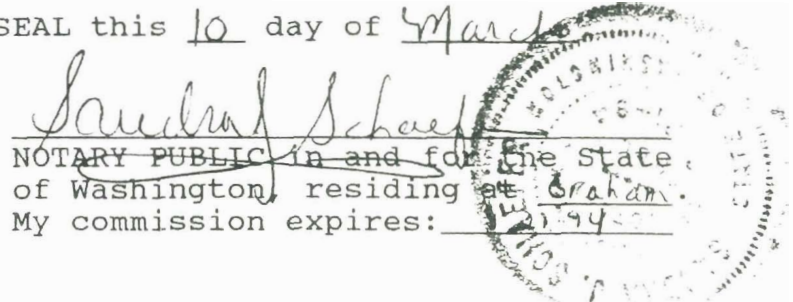 SEAL this 10 day of March
Sandra J Schaef
NOTARY PUBLIC in and for the State
of Washington, residing at Graham.
My commission expires: 94